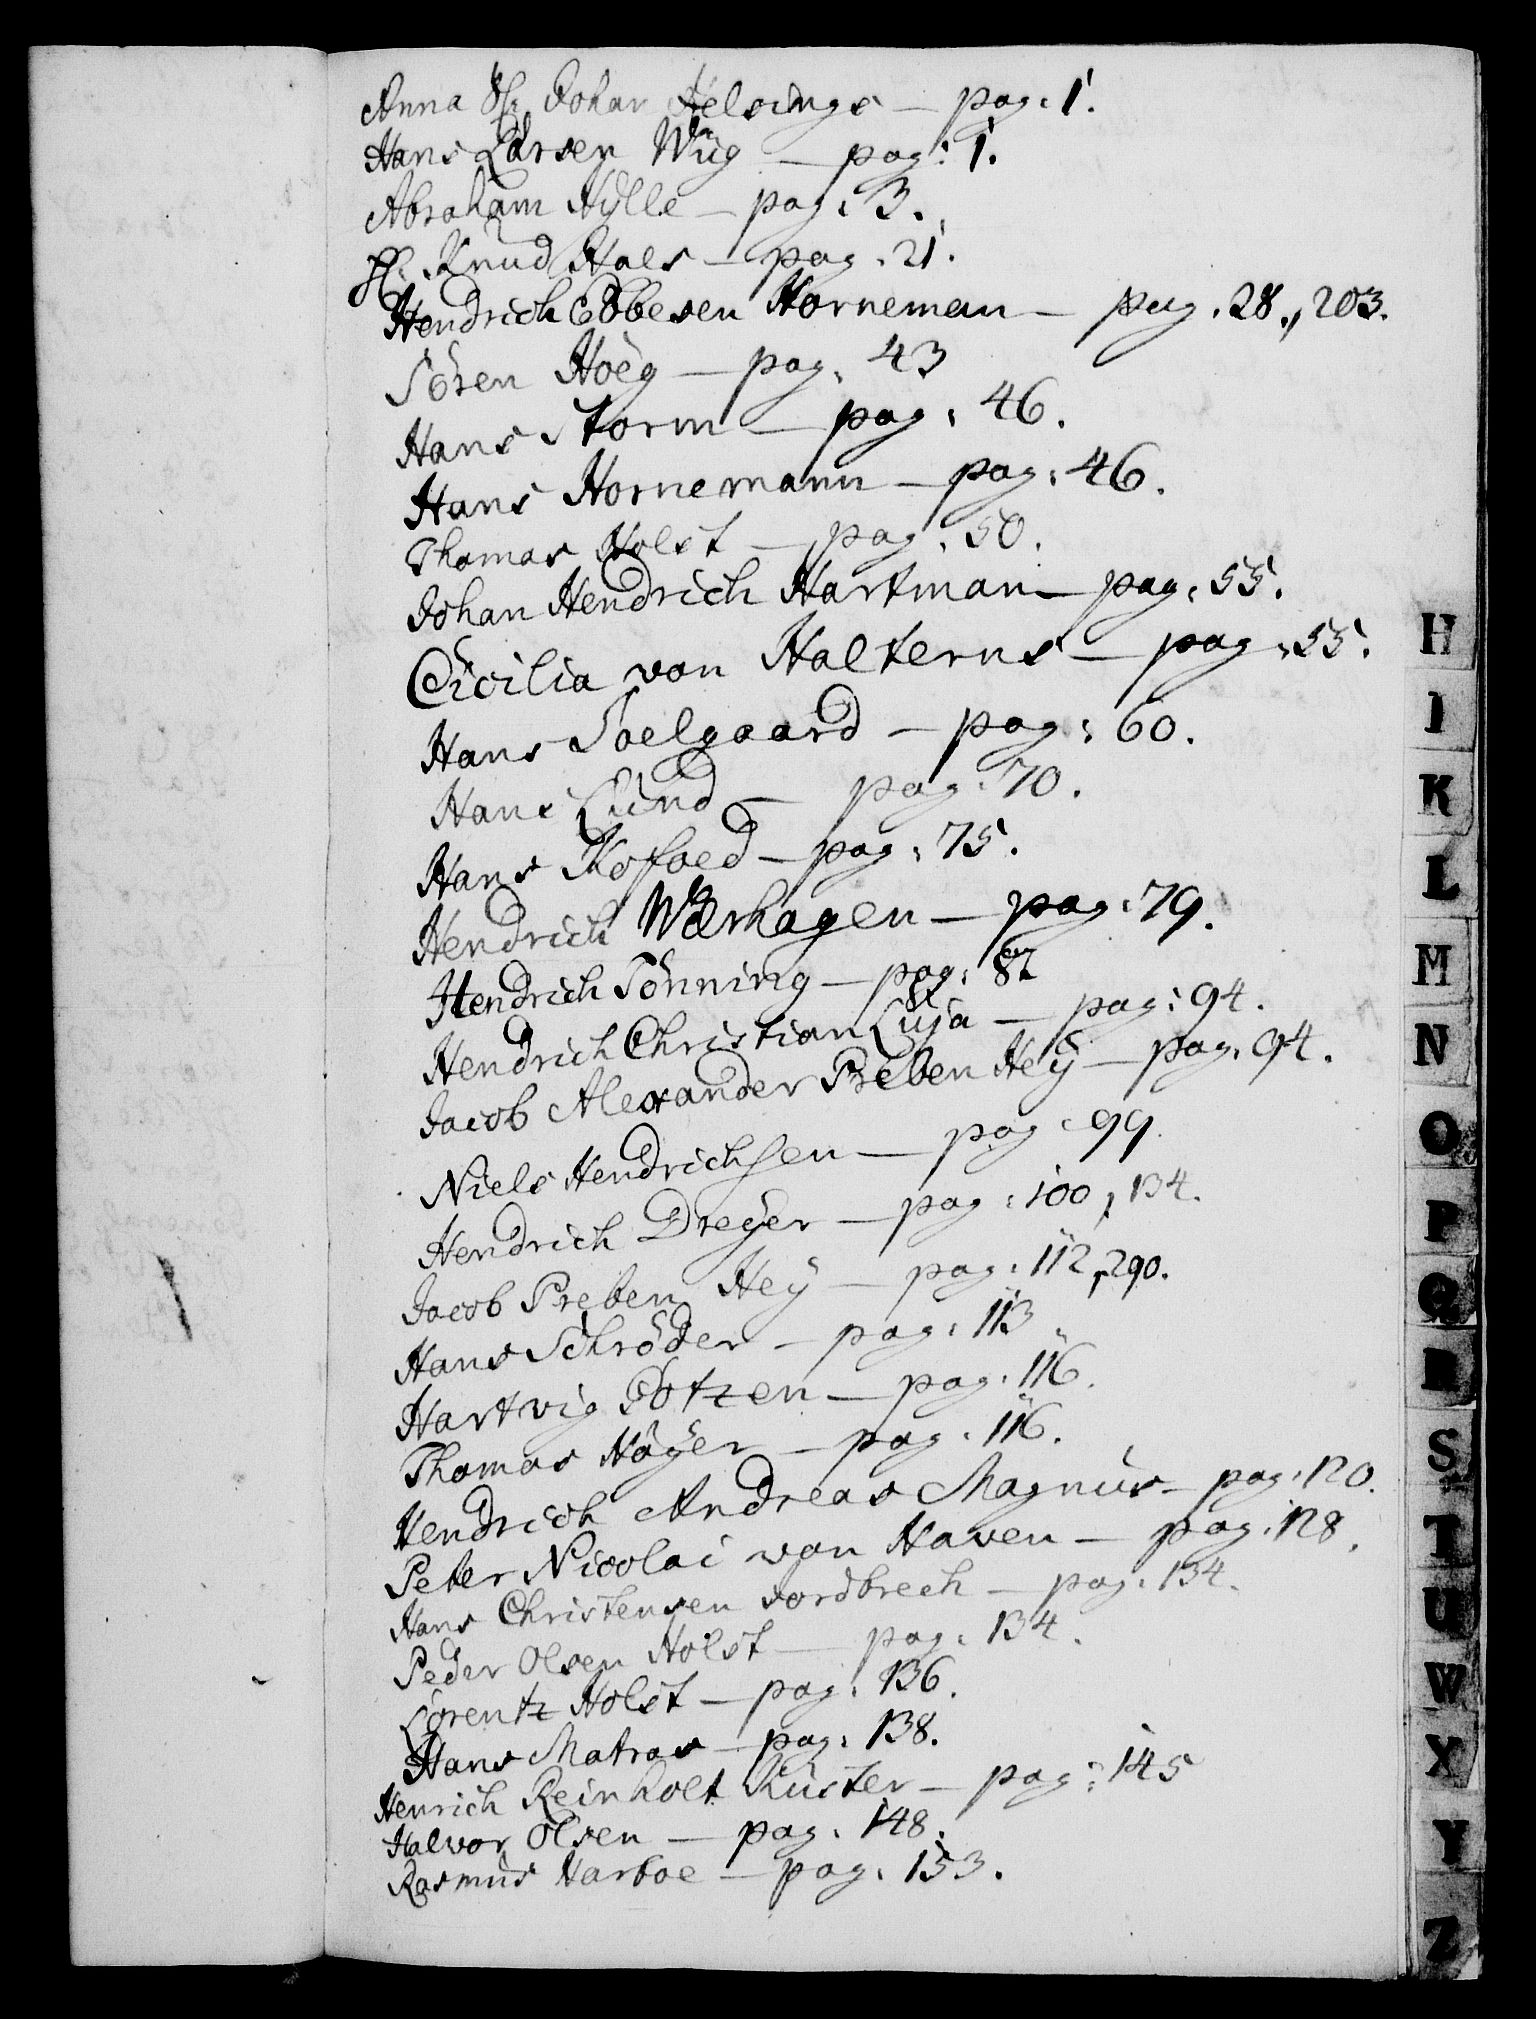 Anna Sl: Johan Helsings — pag: 1.
Hans Larsen Wüg — pag: 1.
Abraham Hÿlle — pag: 3.
Sl: Knud Haes — pag: 21.
Hendrich Ebbesen Horneman — pag. 28., 203.
Sören Höeg — pag: 43
Hans Storm — pag: 46.
Hans Hornemann — pag: 46.
Thomas Holst — pag: 50.
Johan Hendrich Hartman — pag: 55.
Cicilia von Halterns — pag: 55.
Hans Soelgaard — pag: 60.
Hans Lünd — pag: 70.
Hans Kofoed — pag: 75.
Hendrich — pag: 79.
Hendrich Sönning — pag: 82
Hendrich Christian Lüja — pag: 94.
Jacob Alexander Preben Heÿ — pag: 94.
Niels Hendrichsen — pag: 99.
Hendrich Dreÿer — pag: 100, 134.
Jacob Preben Heÿ — pag: 112, 290.
Hans Schröder — pag: 113.
Hartvig Götzen — pag: 116.
Thomas Höÿer — pag: 116.
Hendrich Andreas Magnus — pag: 120.
Peter Nicolai von Haven — pag: 128.
Hans Christensen Jordbrech — pag: 134.
Peder Olsen Holst — pag: 134.
Lorentz Holst — pag: 136.
Hans Matras — pag: 138.
Henrich Reinholt Küster — pag: 145
Halvor Olsen — pag: 148.
Rasmus Harboe — pag: 153.
H
I
K
L
M
N
O
P
Q
R
S
T
U
W
X
Y
Z